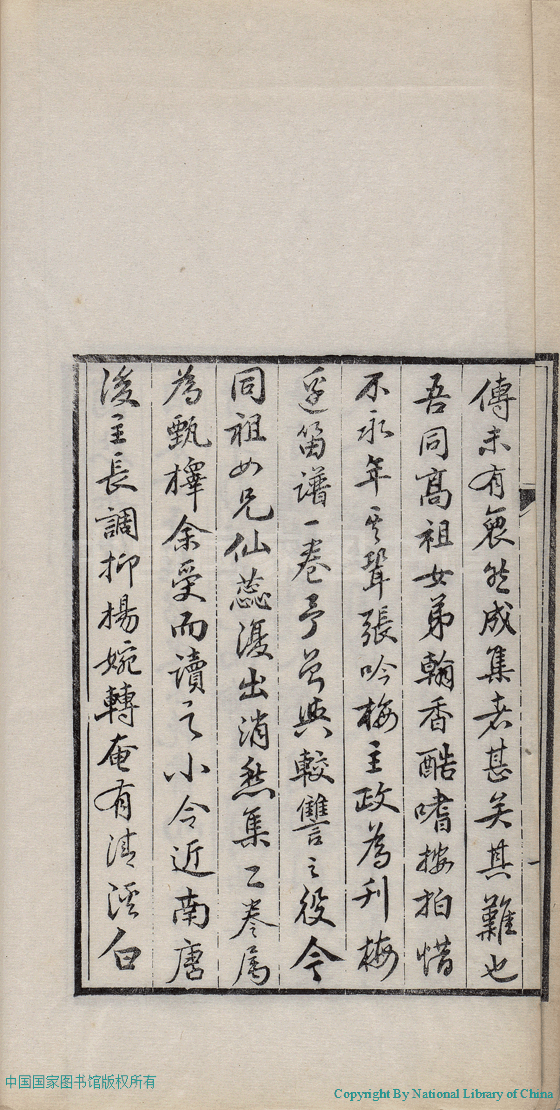 傳未有裒然成集者甚矣其難也
吾同高祖女弟翰香酷嗜按拍惜
不永年其聟張吟梅主政為刋梅
邊笛譜一卷予曽與較讐之役今
同祖女兄仙蕊復出消愁集二卷属
為甄擇余受而讀之小令近南唐
後主長調抑揚婉轉奄有清溪白
中国国家图书馆版权所有
Copyright By National Library of China